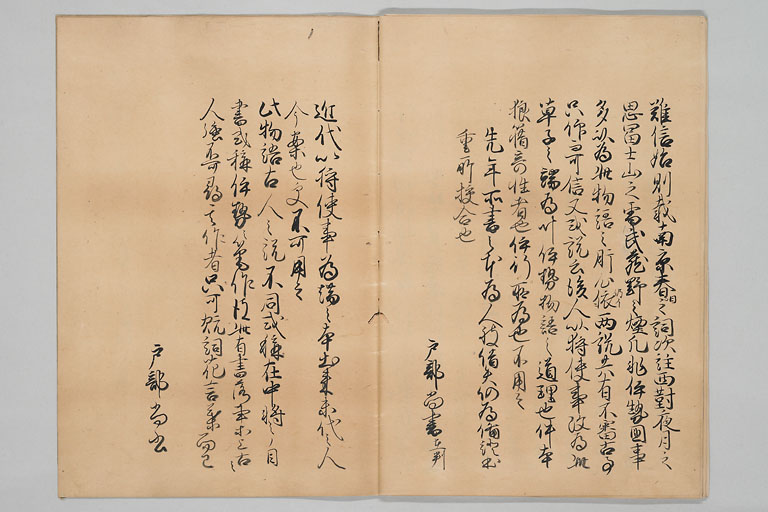 難信始則載南京春日之詞次註西對夜月之
思冨士山之雪武蔵野之煙凡非伊勢国事
多以為此物語之肝心依兩説共有不審古事
只仰而可信又或説云後人以狩使事改為此
草子之端為叶伊勢物語之道理也件本
狼藉奇怪者也伊行所為也不用之
先年所書之本為人被借失仍為備證本
重所校合也
戸部尚書在判
近代以狩使事為端之本出来末代之人
今案也更不可用之
此物語古人之説不同或稱在中将之自
書或稱伊勢之筆作
人強不可尋其作者只可翫詞花言葉而已
戸部尚書